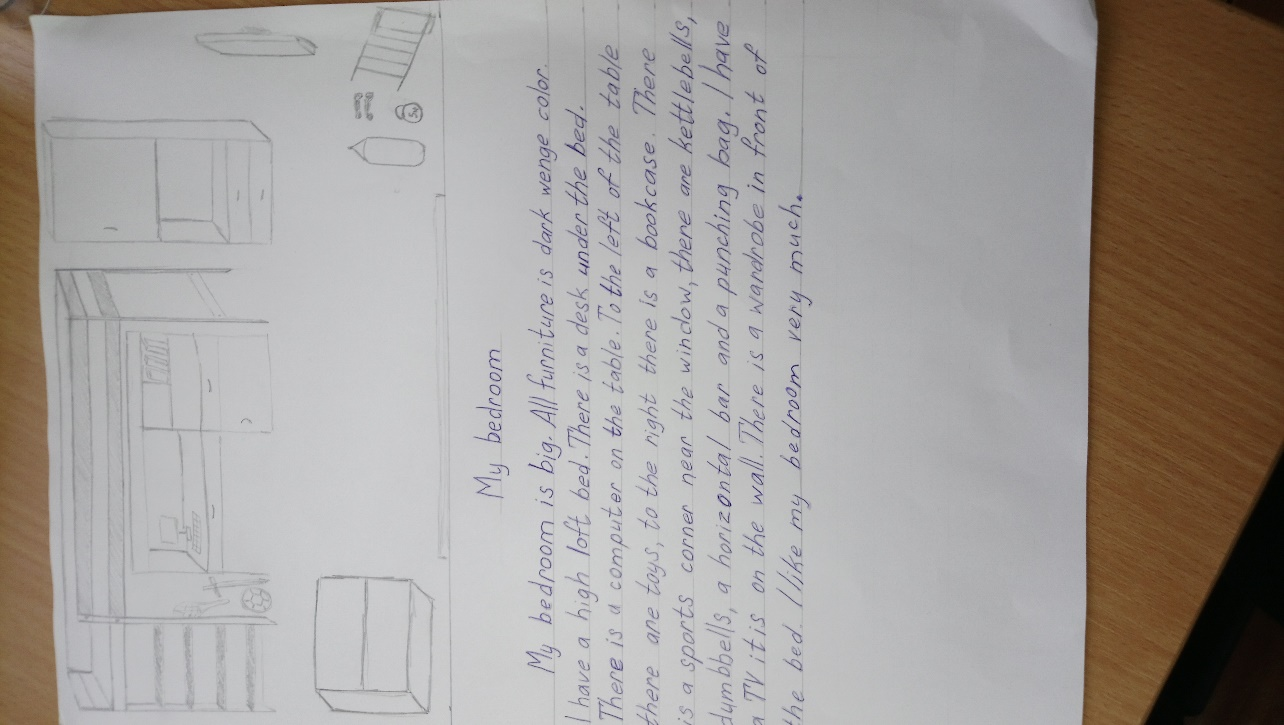 My bedroom
My bedroom is big. All furniture is dark wenge color.
I have a high loft bed. There is a desk under the bed.
There is a computer on the table. To the left of the table
there are toys, to the right there is a bookcase. There
is a sports corner near the window, there are kettlebells,
dumbbells, a horizontal bar and a punching bag. I have
a TV it is on the wall. There is a wardrobe in front of
the bed. I like my bedroom very much.